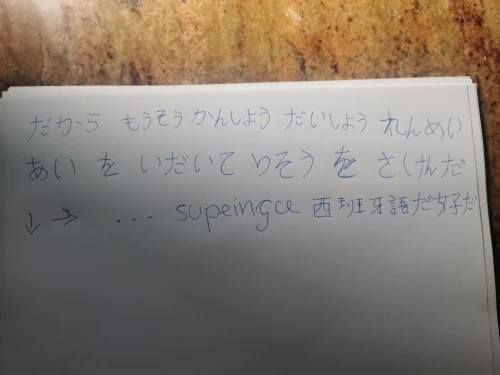 だから もうそう かんしよう だいしよう れんめい
あい を いだいて りそう を さけんだ
↓ → ... supeingu 西班牙語だ好だ